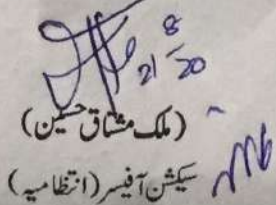 21-8-20
(ملک مشتاق حسین)
سیکشن آفیسر (انتظامیہ)